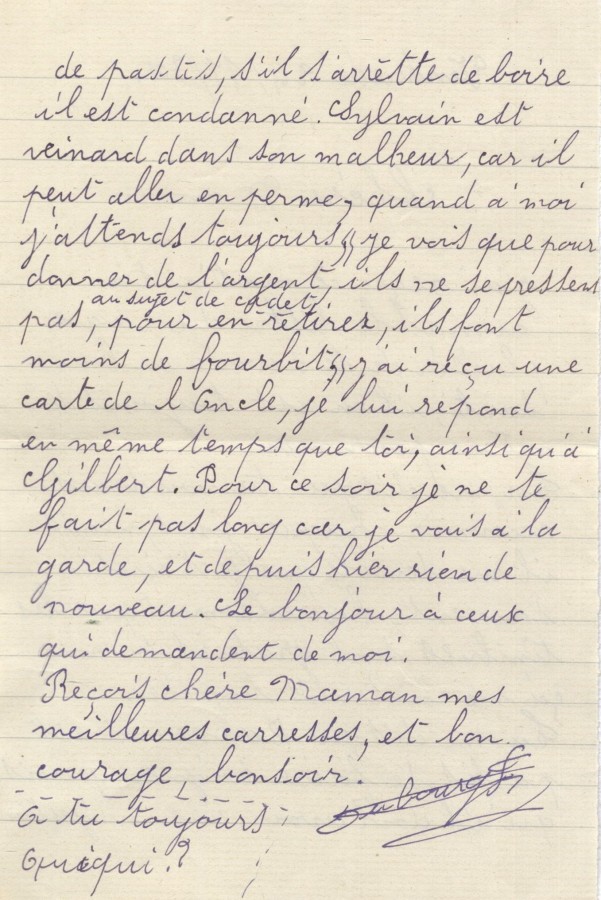 de pastis, s'il s'arrètte de boire
il est condanné. Sylvain est
veinard dans son malheur, car il
peut aller en perme, quand a moi
j'attends toujours, je vois que pour
donner de l'argent, ils ne se pressent
au sujet de cadet,
pas, pour en retirez, ils font
moins de fourbit, j'ai reçu une
carte de l Oncle, je lui repond
en même temps que toi, ainsi qu'a
Gilbert. Pour ce soir je ne te
fait pas long car je vais a la
garde, et depuis hier rien de
nouveau. Le bonjour à ceux
qui demandent de moi.
Reçois chère Maman mes
meilleures carresses, et bon
courage, bonsoir.
Dubourg
A tu toujours
Quiqui?